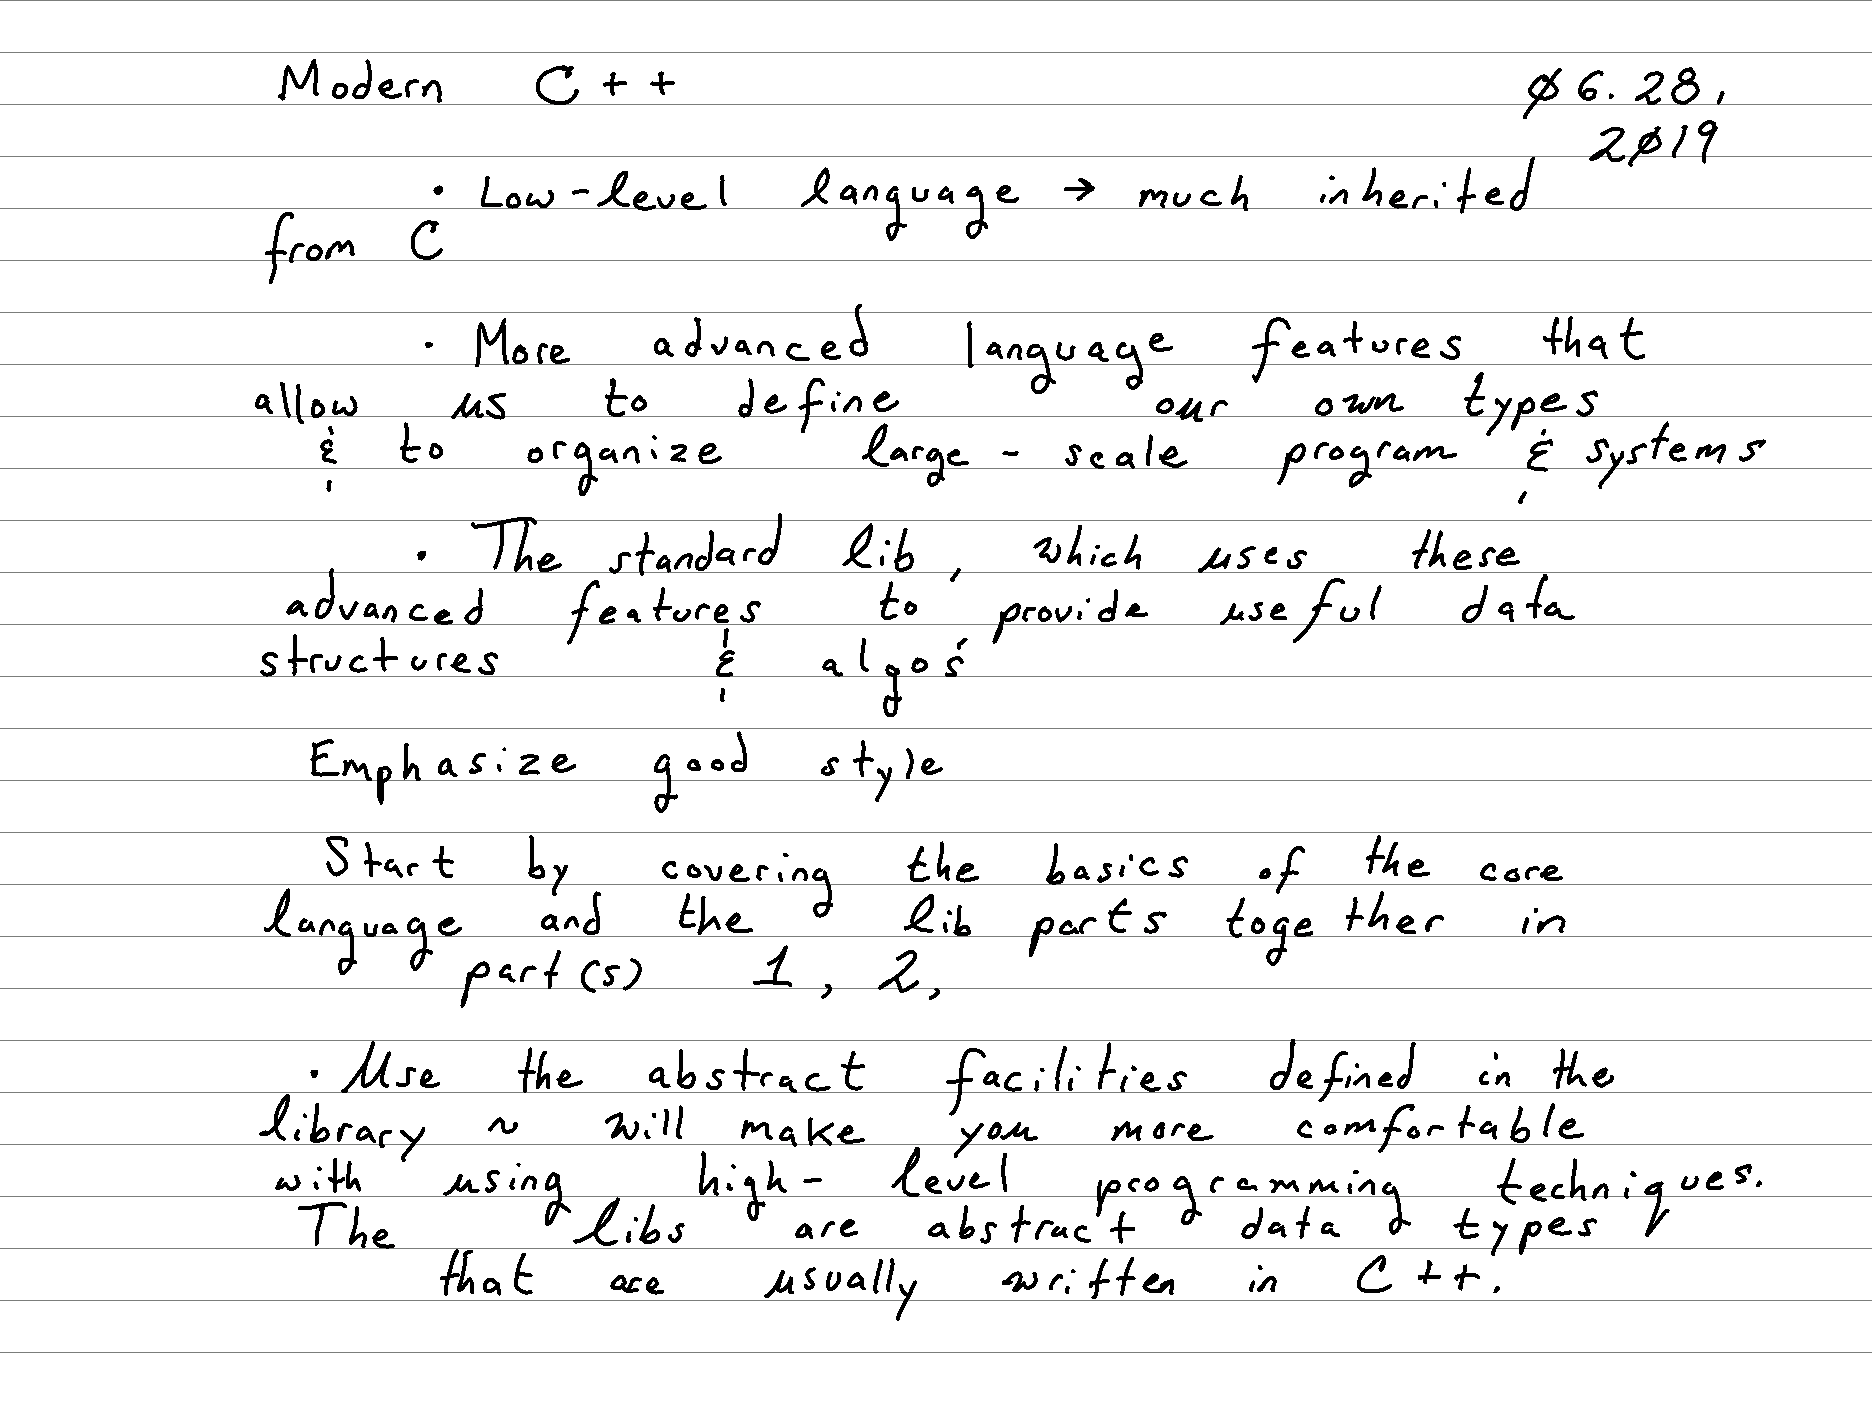 Modern C++
ø6.28,
2ø19
· Low-level language → much inherited
from C
· More advanced language features that
allow us to define our own types
& to organize large-scale program & systems
· The standard lib, which uses these
advanced features to provide useful data
structures & algo's
Emphasize good style
Start by covering the basics of the core
language and the lib parts together in
part(s) 1, 2,
· Use the abstract facilities defined in the
library ~ will make you more comfortable
with using high-level programming techniques.
The libs are abstract data types
that are usually written in C++.